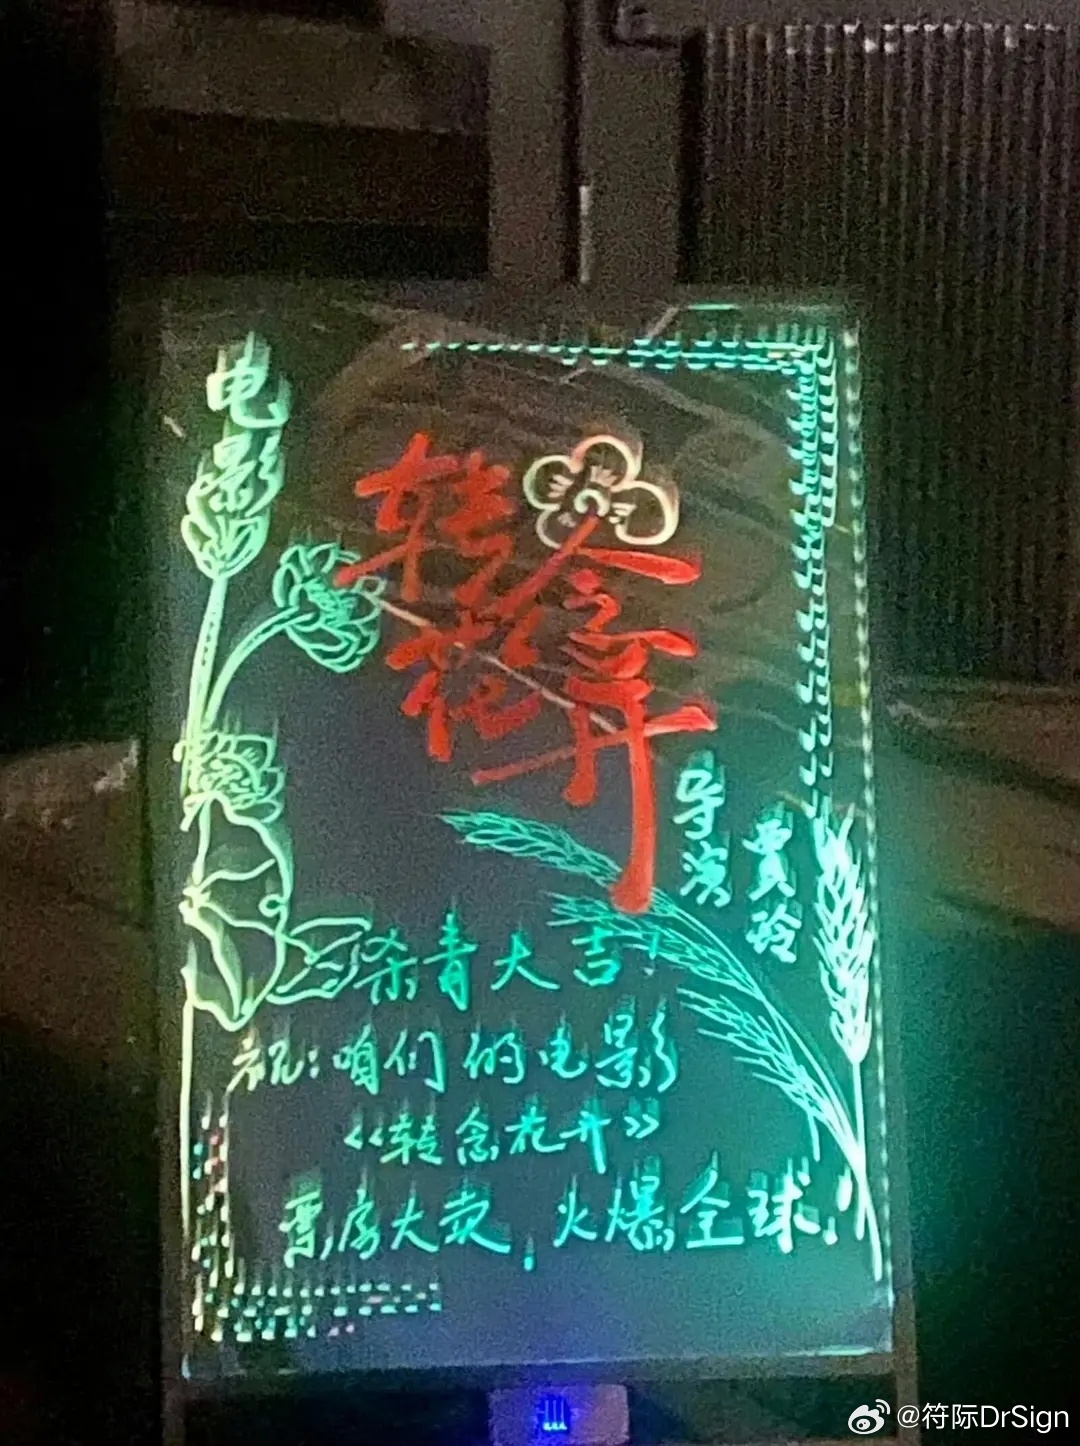 电影
转念
花开
导演
贾玲
杀青大吉!
祝:咱们的电影
《转念花开》
票房大卖,火爆全球!
@符际DrSign